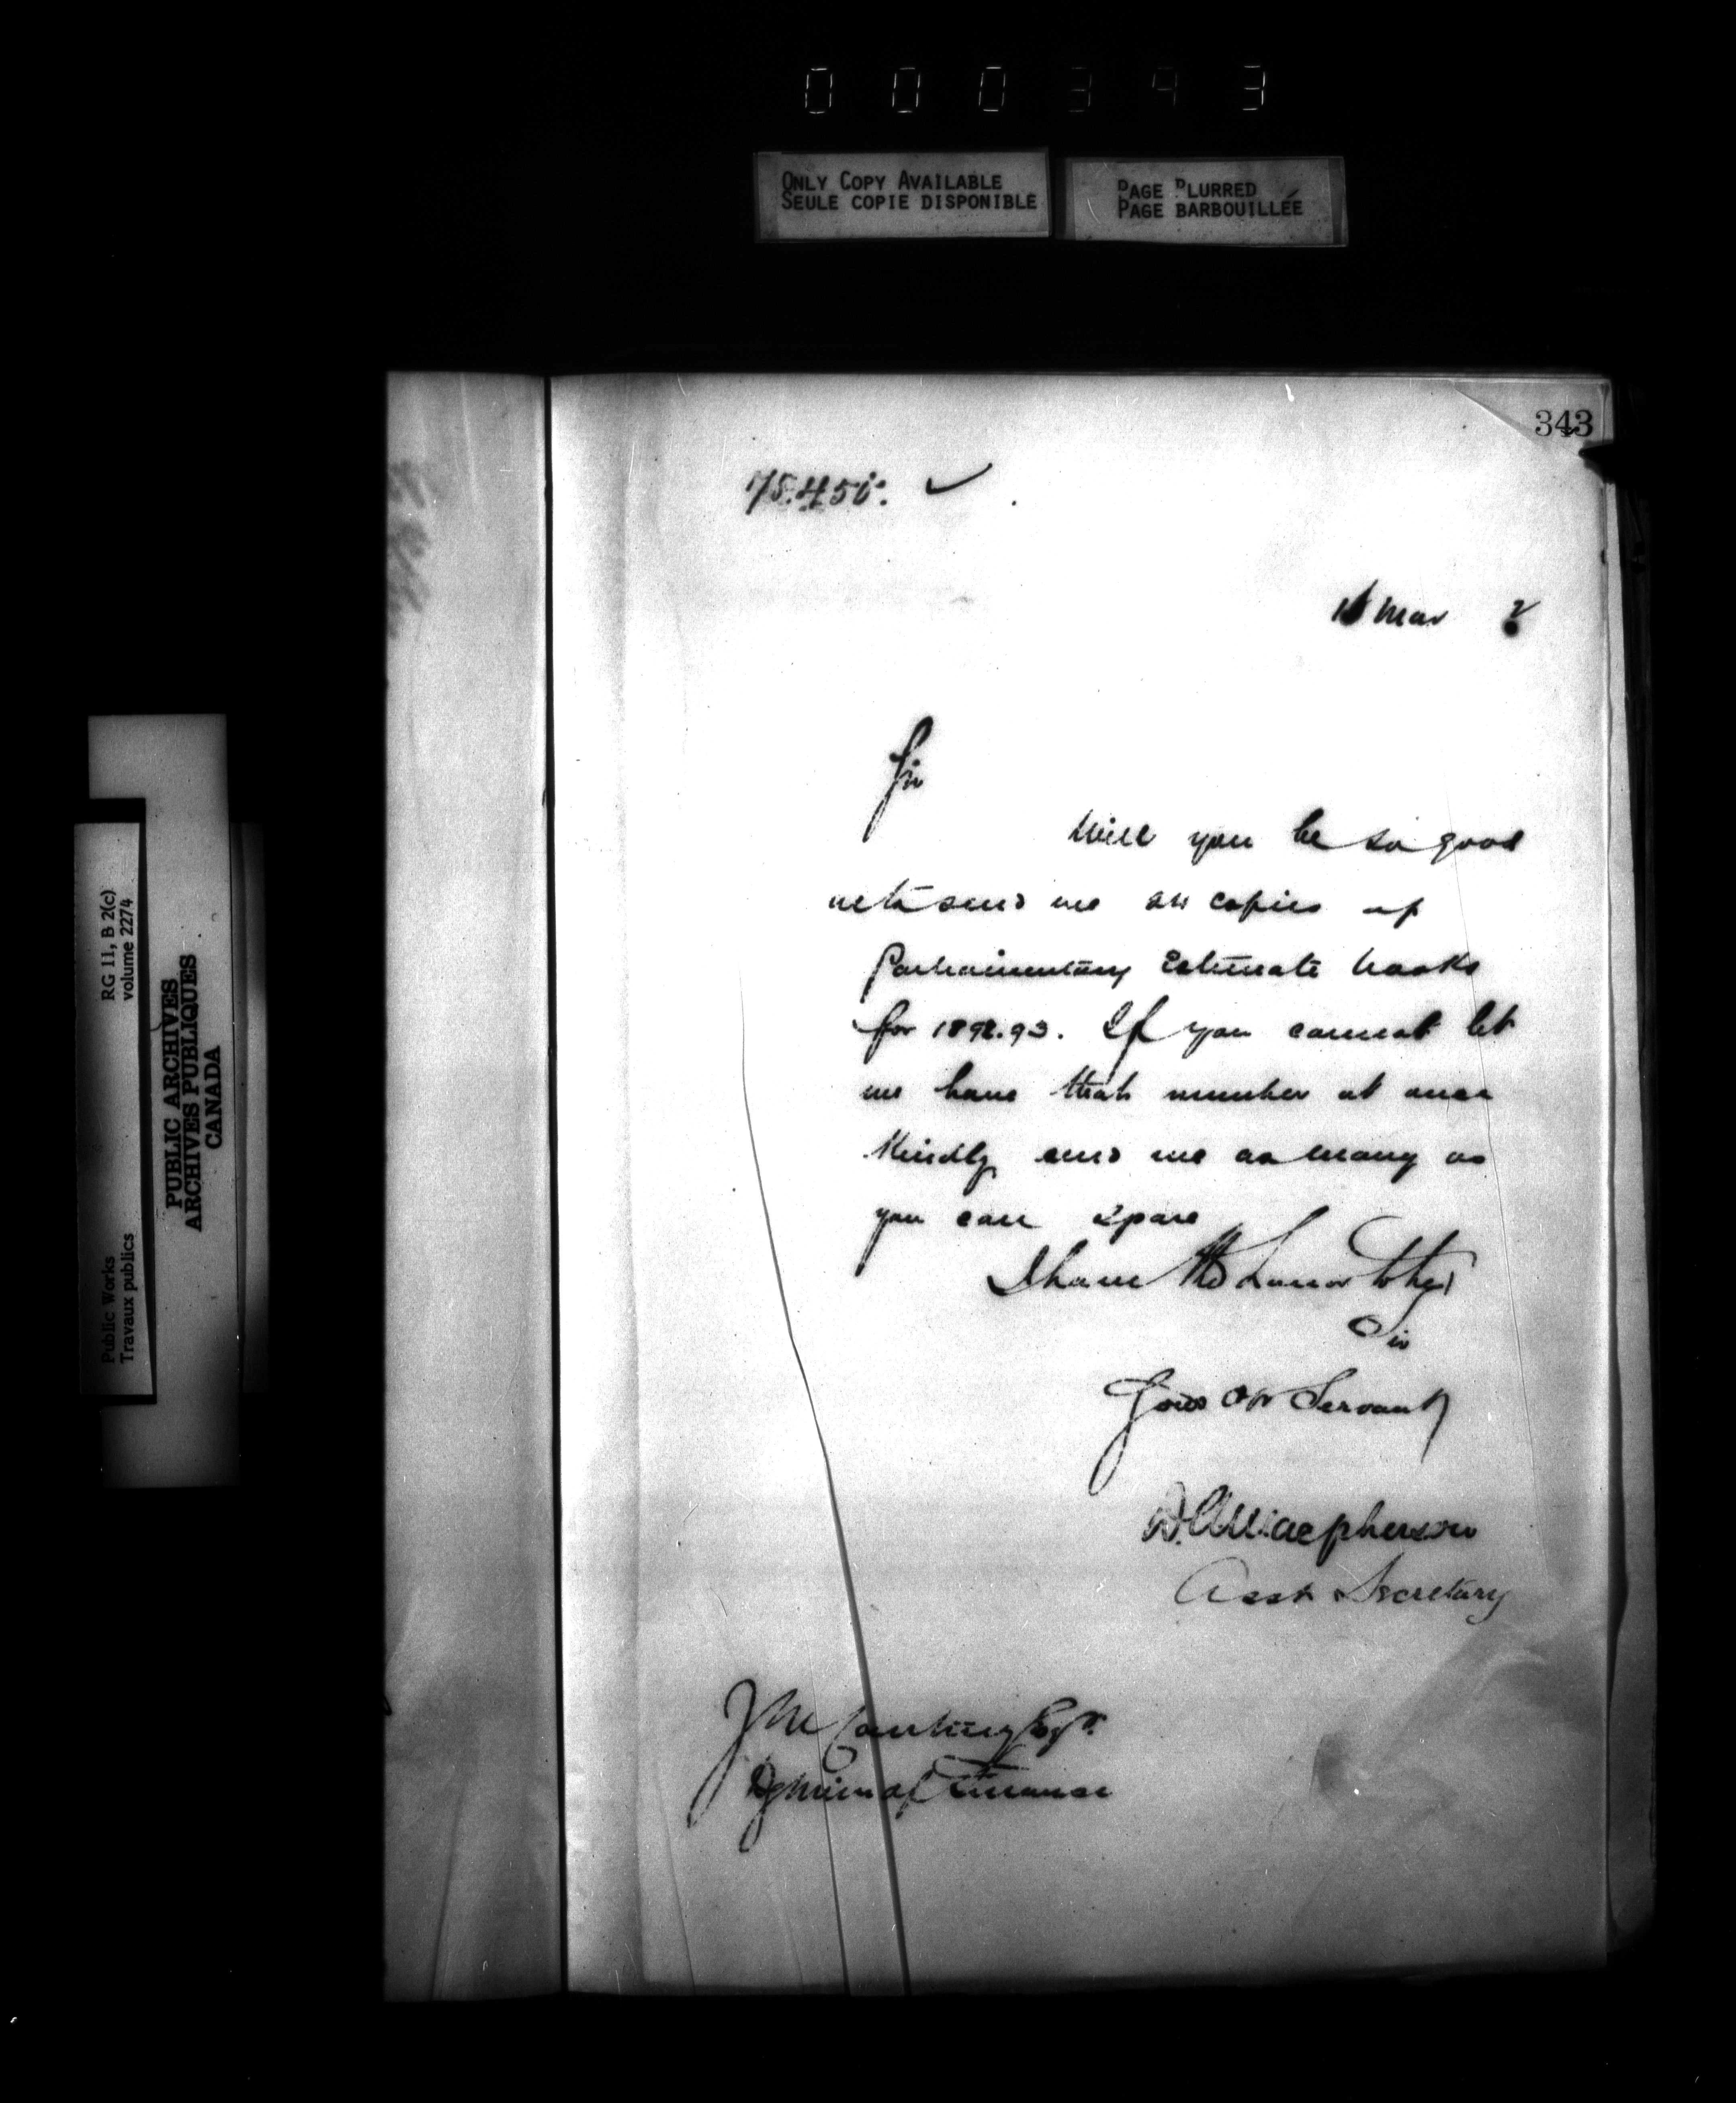 000343
ONLY COPY AVAILABLE
SEULE COPIE DISPONIBLE
PAGE BLURRED
PAGE BARBOUILLÉE
343
16 Mar 2
Sir
Will you be so good
as to send me six copies of
Parliamentary Estimate books
for 1892.93. If you cannot let
me have that number at once
Kindly send me as many as
you can spare
I have the honor to be
Sir
Your Ob Servant
D. A Macpherson
Asst Secretary
J M Courtney Esqr.
Dy Min of Finance
RG 11, B 2(c)
volume 2274
PUBLIC ARCHIVES
ARCHIVES PUBLIQUES
CANADA
Public Works
Travaux publics